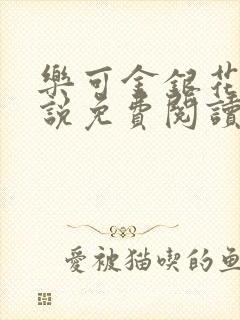 樂可金銀花
說免費閱讀
愛被猫喫的魚